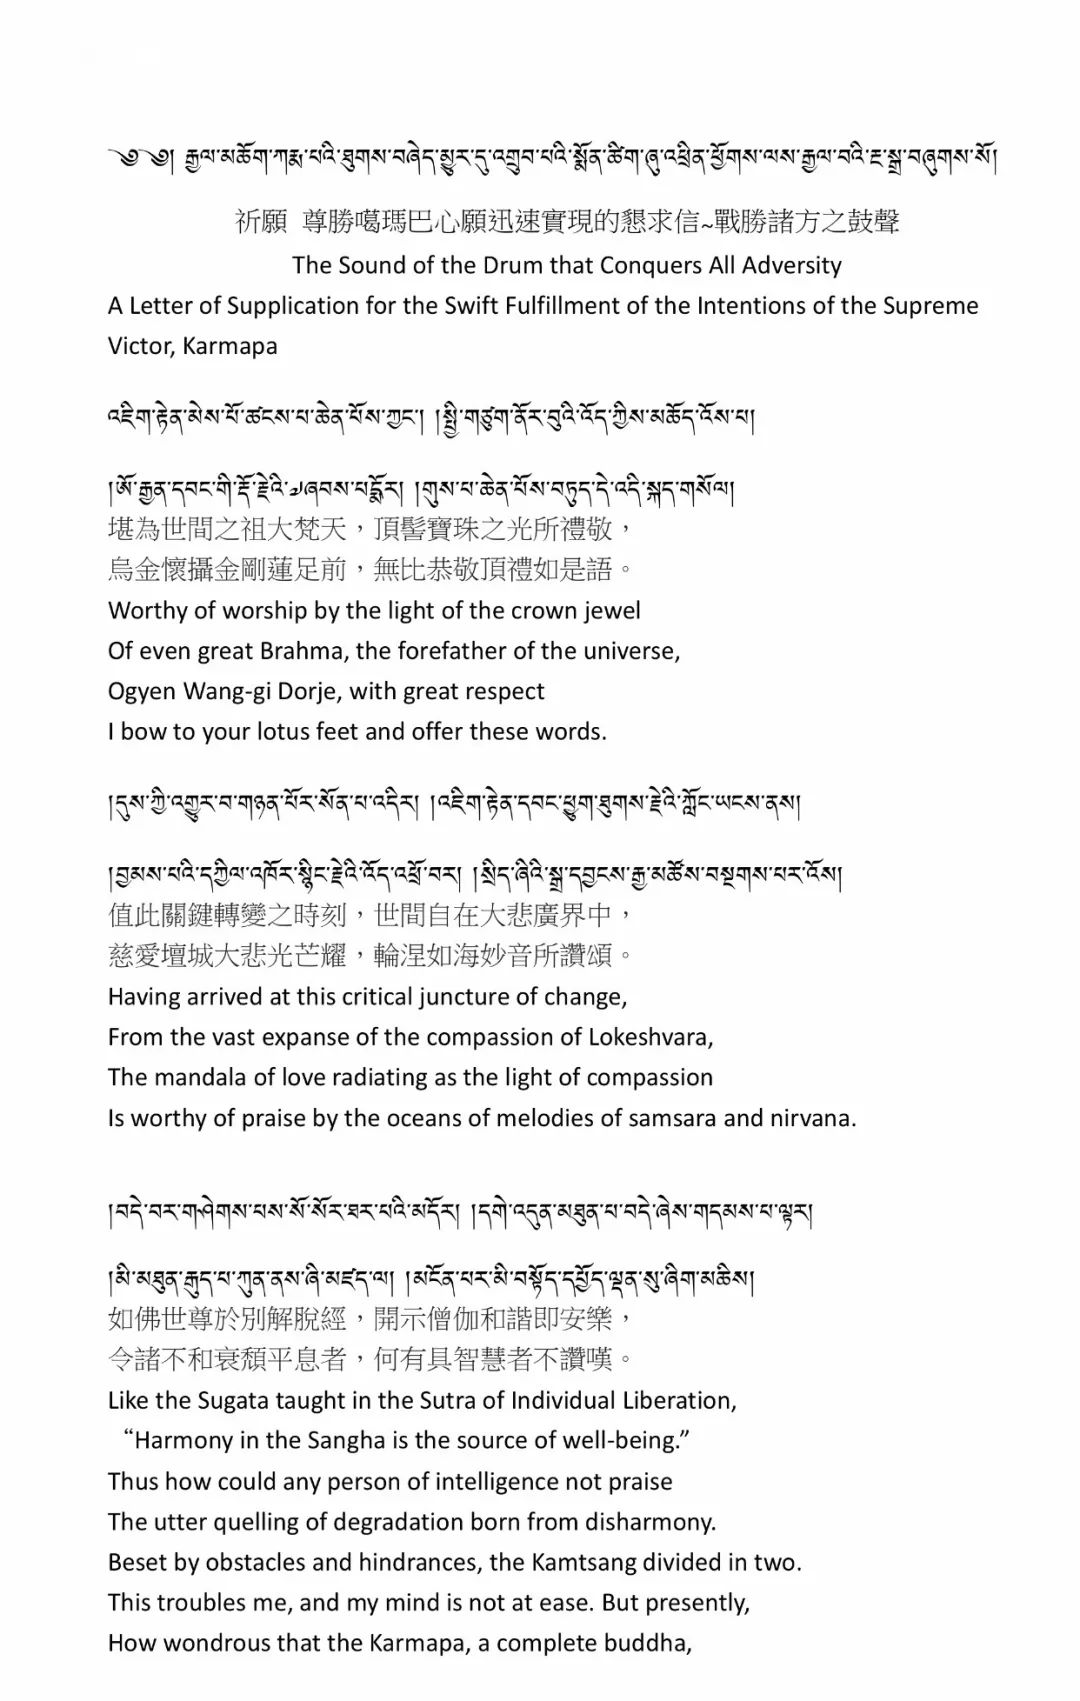 ༄༅། རྒྱལ་མཆོག་ཀརྨ་པའི་ཐུགས་བཞེད་མྱུར་དུ་འགྲུབ་པའི་སྨོན་ཚིག་ཞུ་འཕྲིན་ཕྱོགས་ལས་རྒྱལ་བའི་རྔ་སྒྲ་བཞུགས་སོ།
祈願 尊勝噶瑪巴心願迅速實現的懇求信~戰勝諸方之鼓聲
The Sound of the Drum that Conquers All Adversity
A Letter of Supplication for the Swift Fulfillment of the Intentions of the Supreme
Victor, Karmapa
འཇིག་རྟེན་མེས་པོ་ཚངས་པ་ཆེན་པོས་ཀྱང་། །སྤྱི་གཙུག་ནོར་བུའི་འོད་ཀྱིས་མཆོད་འོས་པ།
།ཨོ་རྒྱན་དབང་གི་རྡོ་རྗེའི་ཞབས་པདྨོར། །གུས་པ་ཆེན་པོས་བཏུད་དེ་འདི་སྐད་གསོལ།
堪為世間之祖大梵天，頂髻寶珠之光所禮敬，
烏金懷攝金剛蓮足前，無比恭敬頂禮如是語。
Worthy of worship by the light of the crown jewel
Of even great Brahma, the forefather of the universe,
Ogyen Wang-gi Dorje, with great respect
I bow to your lotus feet and offer these words.
།དུས་ཀྱི་འགྱུར་བ་གཉན་པོར་སོན་པ་འདིར། །འཇིག་རྟེན་དབང་ཕྱུག་ཐུགས་རྗེའི་ཀློང་ཡངས་ནས།
།བྱམས་པའི་དཀྱིལ་འཁོར་སྙིང་རྗེའི་འོད་འཕྲོ་བར། །སྲིད་ཞིའི་སྒྲ་དབྱངས་རྒྱ་མཚོས་བསྔགས་པར་འོས།
值此關鍵轉變之時刻，世間自在大悲廣界中，
慈愛壇城大悲光芒耀，輪涅如海妙音所讚頌。
Having arrived at this critical juncture of change,
From the vast expanse of the compassion of Lokeshvara,
The mandala of love radiating as the light of compassion
Is worthy of praise by the oceans of melodies of samsara and nirvana.
།བདེ་བར་གཤེགས་པས་སོ་སོར་ཐར་པའི་མདོར། །དགེ་འདུན་མཐུན་པ་བདེ་ཞེས་གདམས་པ་ལྟར།
།མི་མཐུན་རྒུད་པ་ཀུན་ནས་ཞི་མཛད་ལ། །མངོན་པར་མི་བསྟོད་དཔྱོད་ལྡན་སུ་ཞིག་མཆིས།
如佛世尊於別解脫經，開示僧伽和諧即安樂，
令諸不和衰頹平息者，何有具智慧者不讚嘆。
Like the Sugata taught in the Sutra of Individual Liberation,
“Harmony in the Sangha is the source of well-being.”
Thus how could any person of intelligence not praise
The utter quelling of degradation born from disharmony.
Beset by obstacles and hindrances, the Kamtsang divided in two.
This troubles me, and my mind is not at ease. But presently,
How wondrous that the Karmapa, a complete buddha,